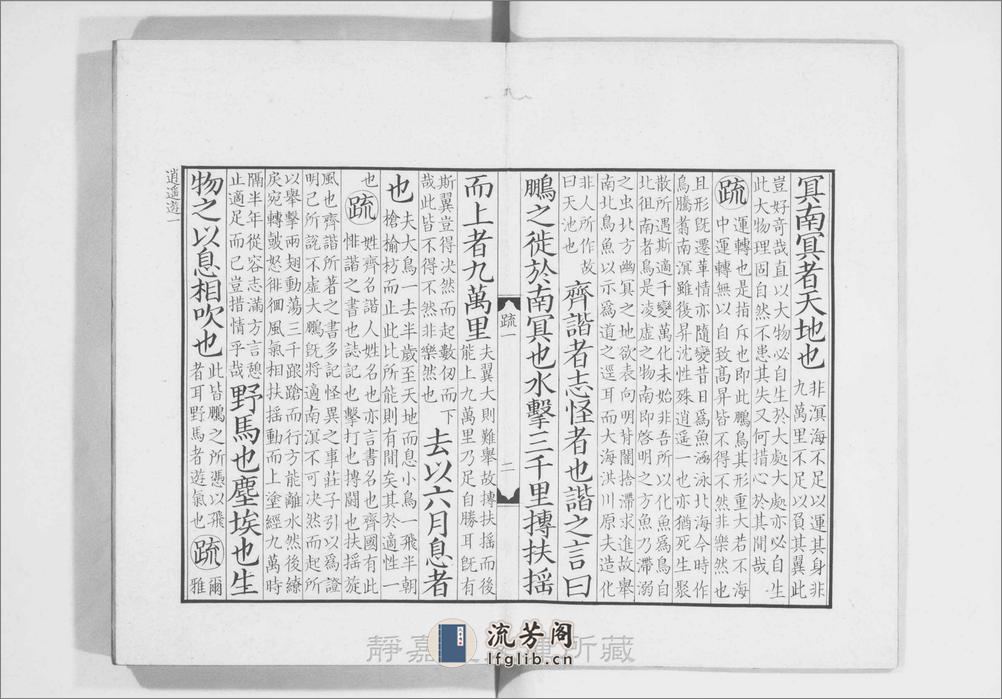 冥南冥者天地也
非溟海不足以運其身非
九萬里不足以負其翼此
豈好奇哉直以大物必自生於大處大處亦必自生
此大物理固自然不患其失又何措心於其間哉
疏
運轉也是指斥也即此鵬鳥其形重大若不海
中運轉無以自致高昇皆不得不然非樂然也
且形旣遷革情亦隨變昔日爲魚涵泳北海今時作
鳥騰翥南溟雖復昇沈性殊逍遥一也亦猶死生聚
散所遇斯適千變萬化未始非吾所以化魚爲鳥自
北徂南者鳥是凌虚之物南即啓明之方魚乃滯溺
之虫北方幽冥之地欲表向明背闇捨滯求進故舉
南北鳥魚以示爲道之逕耳而大海洪川原夫造化
非人所作故
曰天池也
齊諧者志怪者也諧之言曰
鵬之徙於南冥也水擊三千里摶扶摇
疏一
二
而上者九萬里
夫翼大則難舉故摶扶摇而後
能上九萬里乃足自勝耳旣有
斯翼豈得决然而起數仞而下
哉此皆不得不然非樂然也
去以六月息者
也
夫大鳥一去半歲至天地而息小鳥一飛半朝
槍榆枋而止此比所能則有間矣其於適性一
也
疏
姓齊名諧人姓名也亦言書名也齊國有此
俳諧之書也誌記也擊打也摶鬭也扶摇旋
風也齊諧所著之書多記怪異之事莊子引以爲證
明己所說不虚大鵬旣將適南溟不可决然而起所
以舉擊兩翅動蕩三千踉蹌而行方能離水然後繚
戾宛轉鼓怒徘徊風氣相扶摇動而上塗經九萬時
隔半年從容志滿方言憩
止適足而已豈措情乎哉
野馬也塵埃也生
物之以息相吹也
此皆鵬之所憑以飛
者耳野馬者遊氣也
疏
爾
雅
逍遥遊一
靜嘉
所藏
流芳阁
lfglib.cn